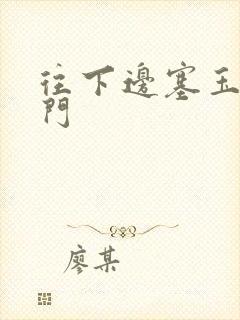 往下邊塞玉
門
廖某